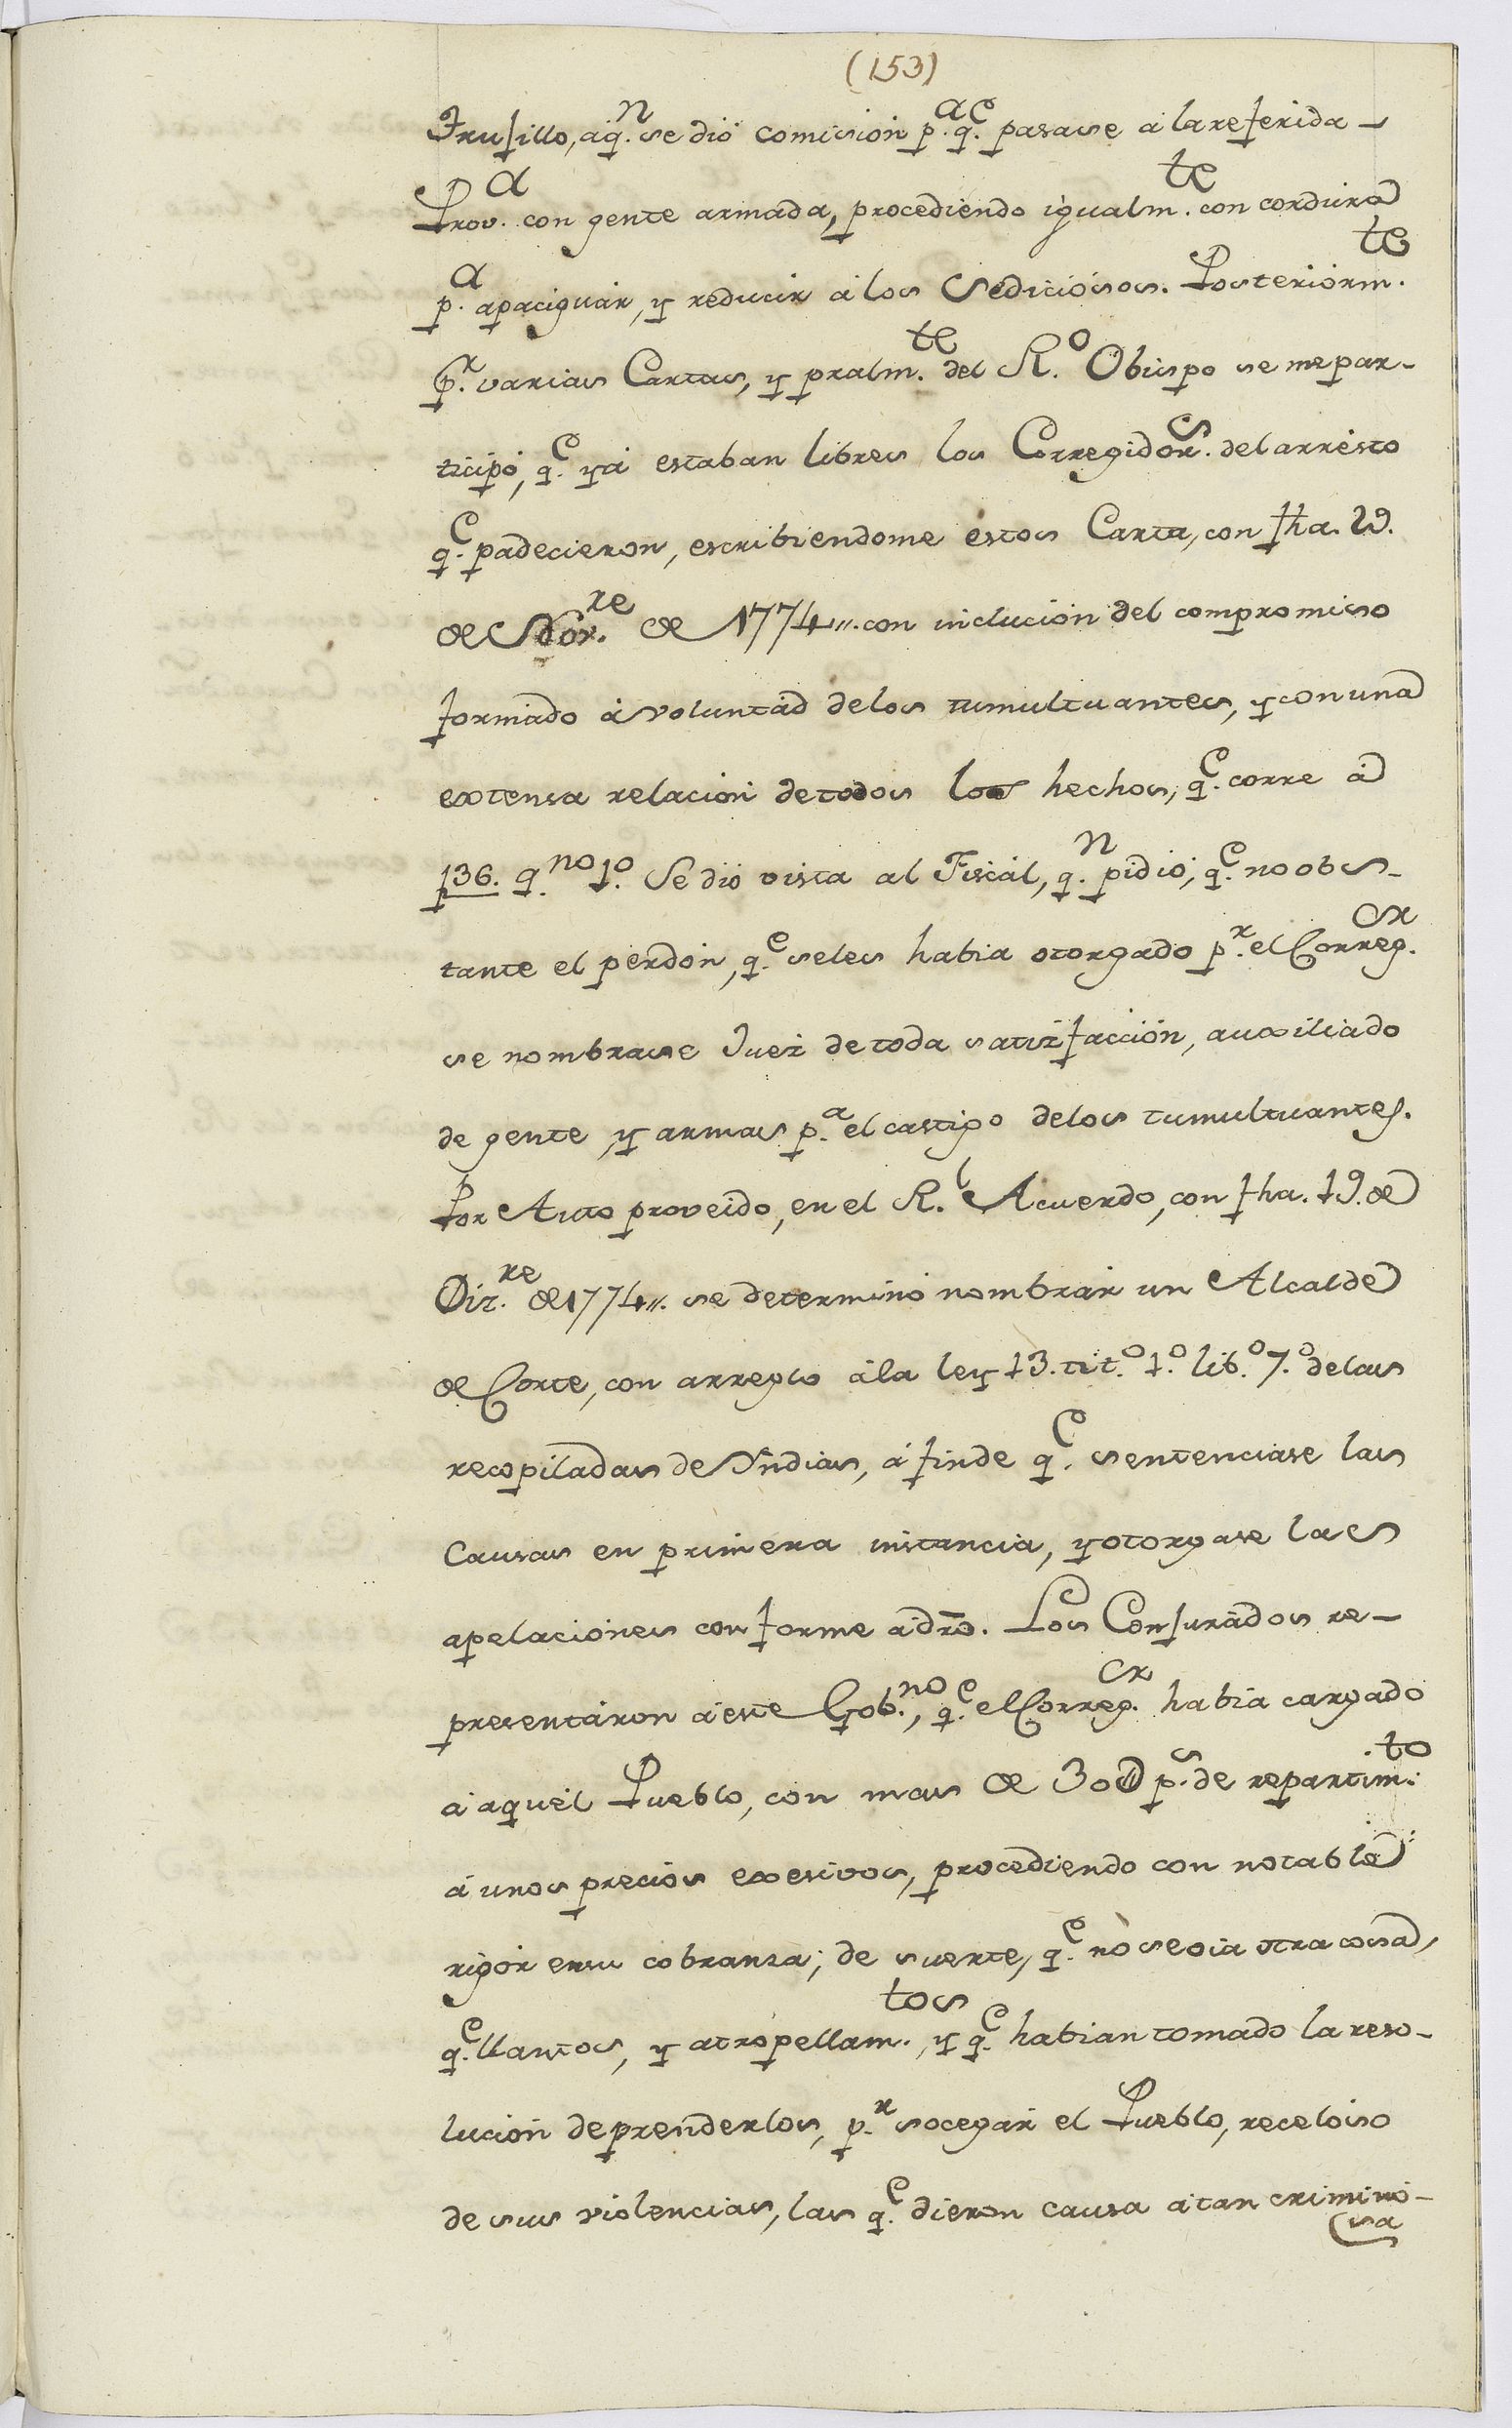 (153)
Trujillo, á q.n se dió comision p.a q.e pasase á la referida
Prov.a con gente armada, procediendo igualm.te con cordura
p.a apaciguar, y reducir á los Sediciosos. Posteriorm.te
p.r varias Cartas, y pralm.te del R.o Obispo se me par-
ticipó, q.e yá estaban libres los Corregidor.s del arresto
q.e padecieron, escribiendome estos Carta, con fha. 29.
de Nov.re de 1774,,. con inclucion del compromiso
formado á voluntad de los tumultuantes, y con una
extensa relacion de todos los hechos, q.e corre á
f 36. q.no 1.o Se dió vista al Fiscál, q.n pidió, q.e no obs-
tante el perdon, q.e se les habia otorgado p.r el Correg.or
se nombrase Juez de toda satisfaccion, auxiliado
de gente, y armas p.a el castigo de los tumultuantes.
Por Auto proveido, en el R.l Acuerdo, con fha. 19. de
Diz.re de 1774,,. se determinó nombrar un Alcalde
de Corte, con arreglo á la ley 13. tit.o 1.o lib.o 7.o de las
recopiladas de Yndias, á fin de q.e sentenciase las
causas en primera instancia, y otorgase las
apelaciones conforme á dro. Los Conjurados re-
presentaron á este Gob.no, q.e el Correg.or habia cargado
á aquel Pueblo, con mas de 30@ p.s de repartim.to
á unos precios exesivos, procediendo con notable
rigor en su cobranza; de suerte, q.e no se oia otra cosa,
q.e llantos, y atropellam.tos, y q.e habian tomado la reso-
lucion de prenderlos, p.r socegar el Pueblo, receloso
de sus violencias, las q.e dieron causa á tan crimino-
sa